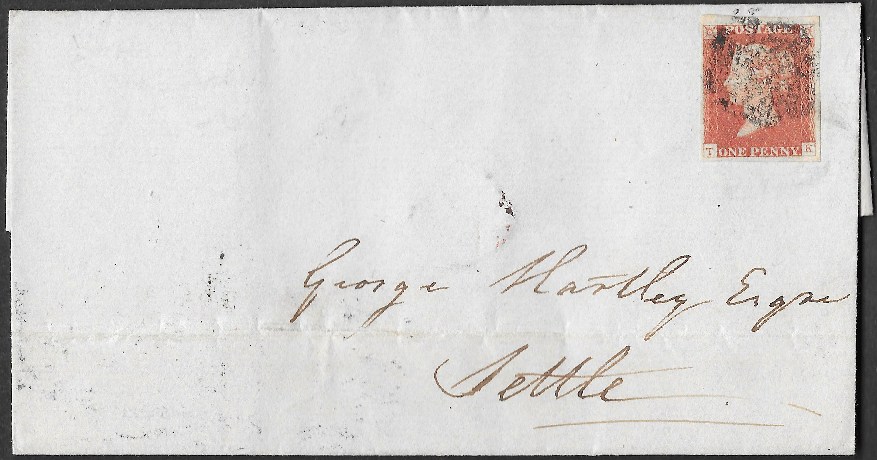 POSTAGE
ONE PENNY
T K
George Hartley Esqre
Settle